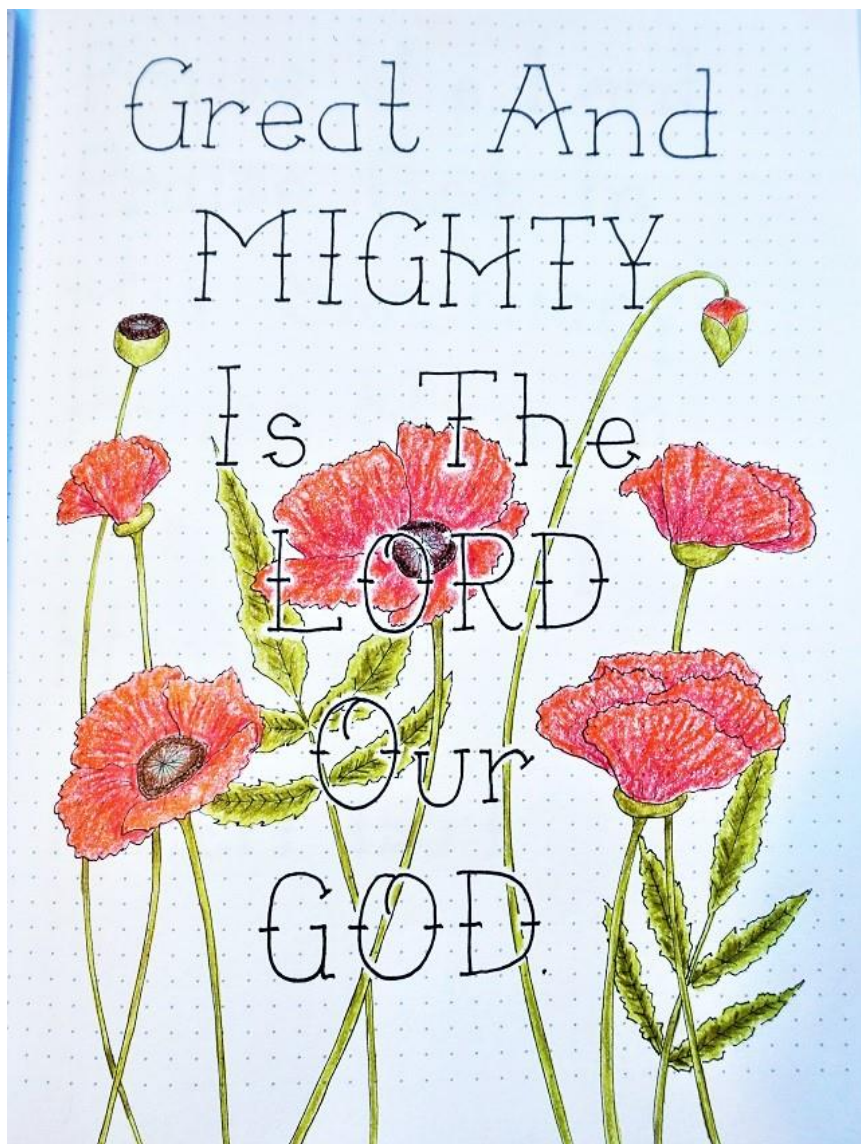 Great And
MIGHTY
Is The
LORD
Our
GOD.